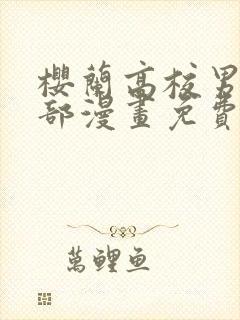 櫻蘭高校男
部漫畫免費
萬鯉魚